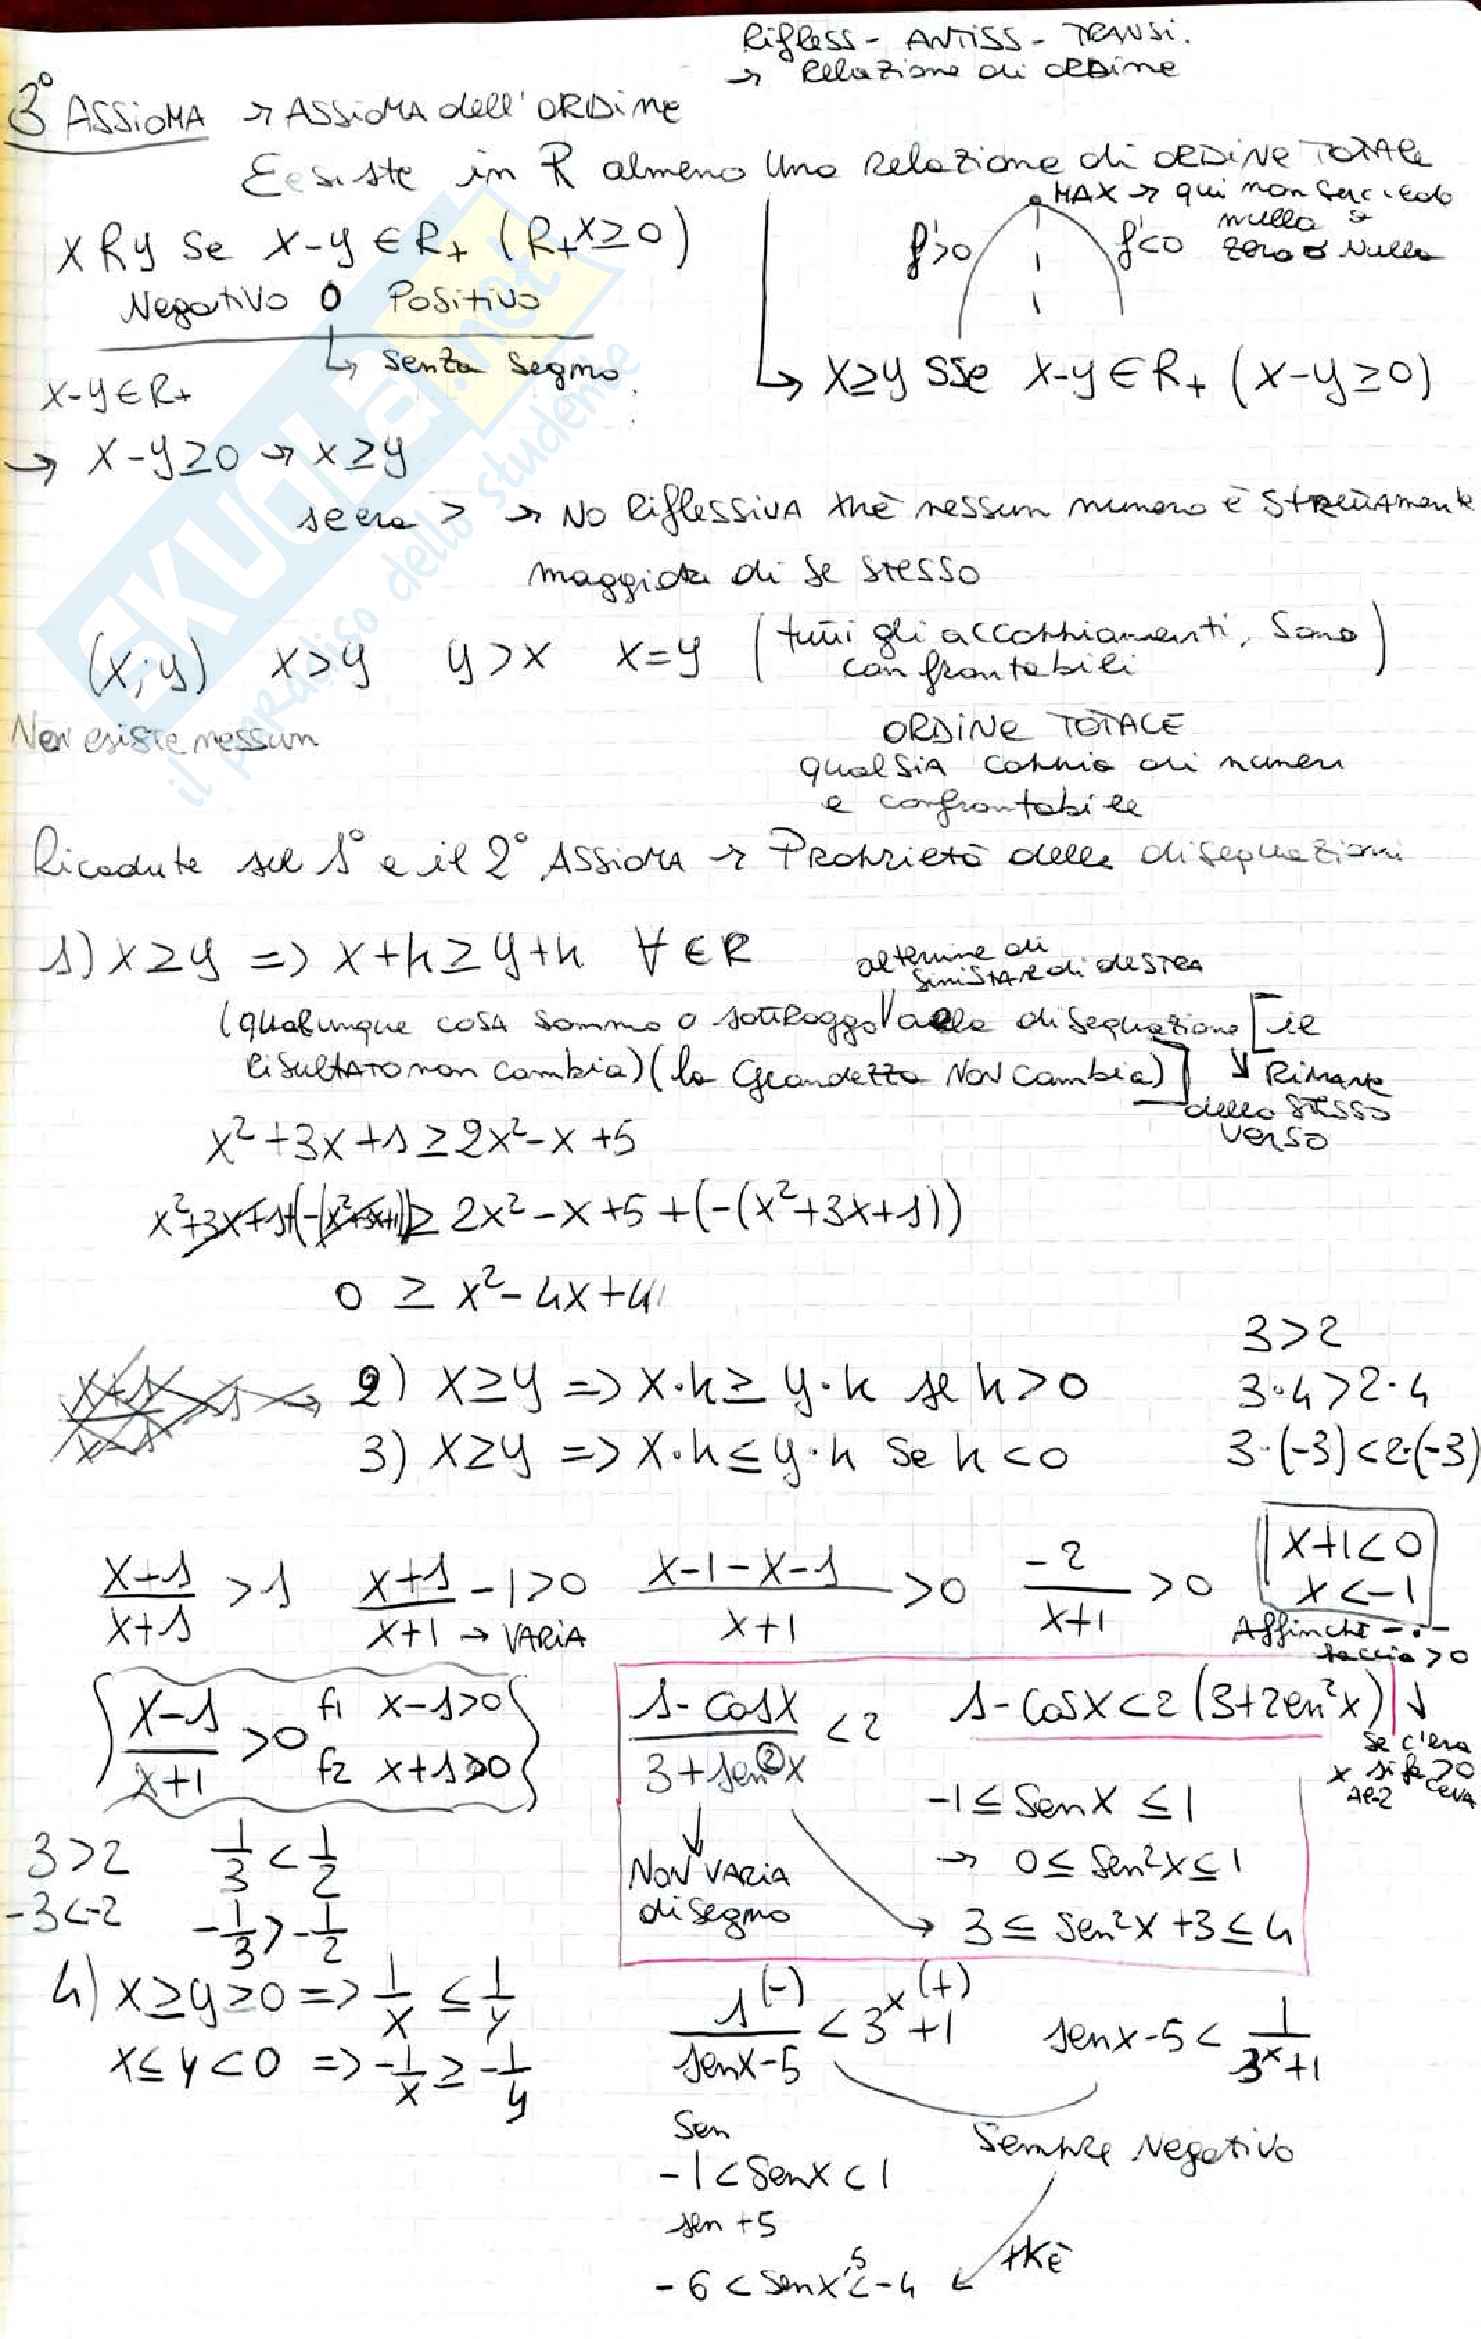 Rifless - ANTISS - TRANSI.
→ Relazione di ORDine
3° ASSIOMA → ASSIOMA dell'ORDine
Eesiste in R almeno una Relazione di ORDiNe TOTALe
x R y Se x-y ∈ R+ (R+ x≥0)
MAX → qui non
nulla
zero o Nullo
f'>0
f'<0
Negativo 0 Positivo
↳ senza segno
x-y ∈ R+
↳ x≥y SSe x-y ∈ R+ (x-y≥0)
→ x-y≥0 → x≥y
se era > → No RiflessivA xkè nessun numero è strettamente
maggiore di se stesso
(x;y) x>y y>x x=y (tutti gli accoppiamenti, sono confrontabili)
Non esiste nessun
ORDiNe TOTALE
qualsia coppia di numeri
e confrontabile
Ricadute sul 1° e il 2° ASSIOMA → Proprietà delle disequazioni
1) x≥y => x+k≥y+k ∀ ∈ R
al termine di
sinistra e di destra
(qualunque cosa sommo o sottraggo alla disequazione [il
risultato non cambia) (la Grandezza Non cambia)] ↓ Rimane
dello stesso
verso
x²+3x+1≥2x²-x+5
x²+3x+1+(-(x²+3x+1))≥ 2x²-x+5+(-(x²+3x+1))
0 ≥ x²-4x+4
3>2
2) x≥y => x·k≥y·k se k>0
3·4>2·4
3) x≥y => x·k≤y·k Se k<0
3·(-3)<2·(-3)
x+1/x+1 >1 x+1/x+1 -1>0 x-1-x-1/x+1 >0 -2/x+1 >0 x+1<0
x<-1
→ VARIA
Affinchè -·-
faccia >0
x-1/x+1 >0 f1 x-1>0
f2 x+1>0
1-cosx/3+sen²x <2 1-cosx<2(3+2en²x) ↓
Se c'era
-1≤Senx≤1
→ 0≤Sen²x≤1
NON VARIA
di segno
→ 3≤Sen²x+3≤4
3>2 1/3<1/2
-3<-2 -1/3>-1/2
4) x≥y≥0 => 1/x ≤ 1/y
x≤y<0 => -1/x ≥ -1/y
1(-)/senx-5 < 3ˣ(+)+1 senx-5< 1/3ˣ+1
Sen
Sempre Negativo
-1<Senx<1
sen +5
xKè
-6<Senx-5<-4
SKUOLA.net
il paradiso dello studente